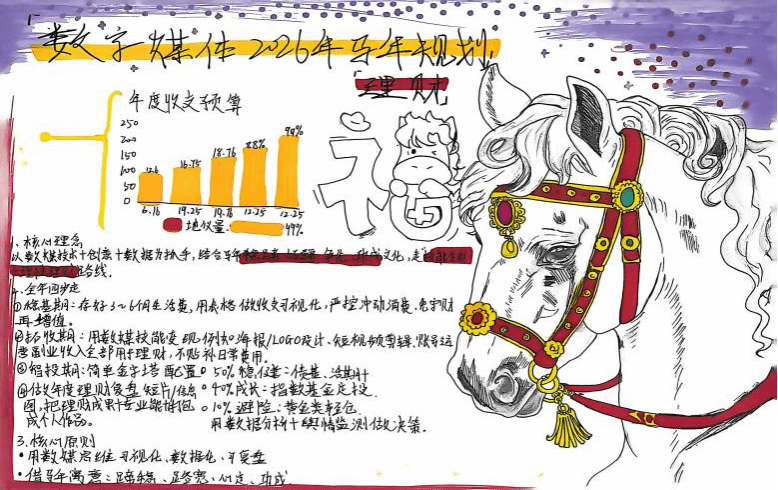 数字媒体2026年马年规划
理财
年度收支预算
250
200
150
100
50
0
12.6
16.75
18.76
88%
99%
6.16
19.25
19.16
12.25
12.25
99%
福
1、核心理念
以数媒技术+创意+数据为抓手,结合马年
路线。
2.全年四步走
①稳基期:存好3~6个月生活费,用表格做收支可视化,严控冲动消费,先守财
再增值。
②扩收期:用数媒技能变现例如海报/LOGO设计、短视频剪辑,账号运
营副业收入全部用于理财,不贴补日常费用。
③智投期:简单金字塔配置 50%稳収益:债基、活期+
40%成长:指数基金定投
10%避险:黄金类轻仓
用数据分析+舆情监测做决策。
④做年度理财复盘短片/信息
图,把理财成果+专业能力打包
成个人作品。
3、核心原则
·用数媒思维可视化、数据化、可复盘
·借马年寓意:蹄稳、路宽、心定、功成